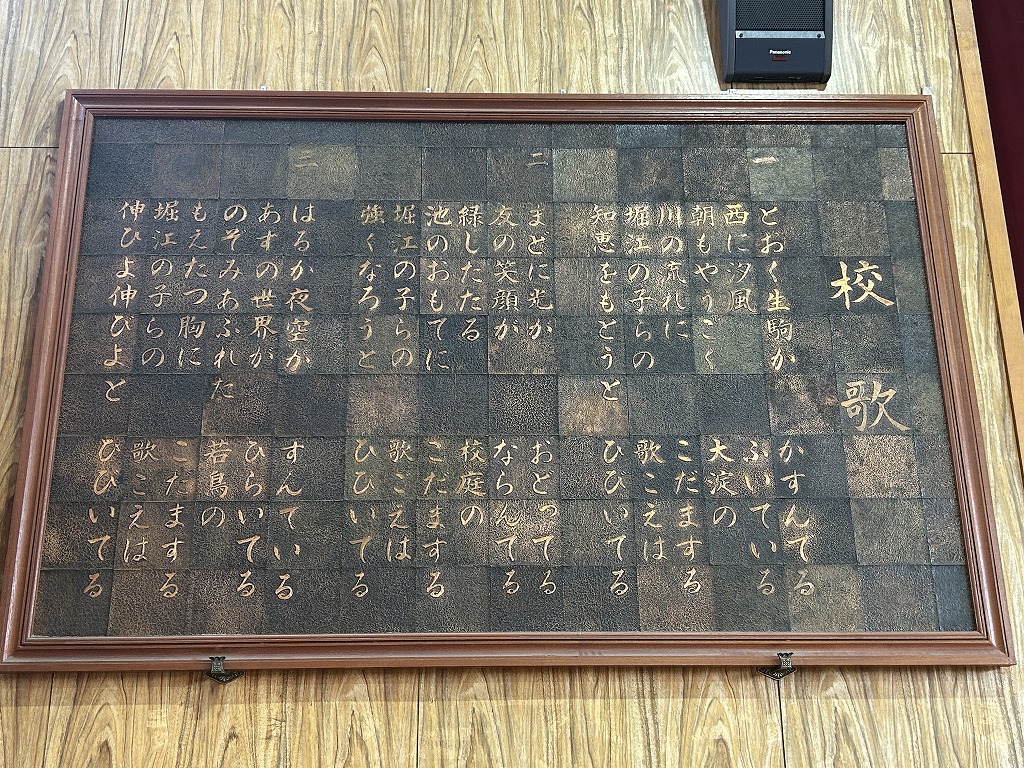 Panasonic
校歌
一
とおく生駒が かすんでる
西に汐風 ふいている
朝もやうごく 大淀の
川の流れに こだまする
堀江の子らの 歌ごえは
知恵をもとうと ひびいてる
二
まどに光が おどってる
友の笑顔が ならんでる
緑したたる 校庭の
池のおもてに こだまする
堀江の子らの 歌ごえは
強くなろうと ひびいてる
三
はるか夜空が すんでいる
あすの世界が ひらいてる
のぞみあふれた 若鳥の
もえたつ胸に こだまする
堀江の子らの 歌ごえは
伸びよ伸びよと ひびいてる